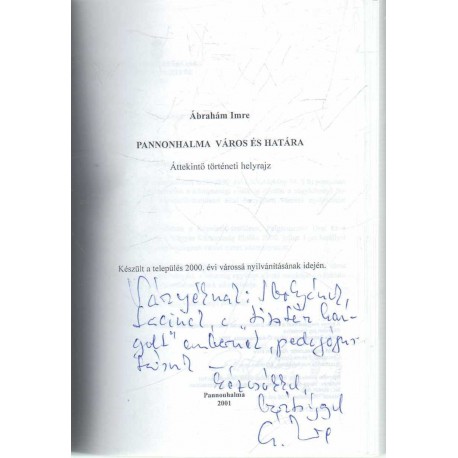 Ábrahám Imre
PANNONHALMA VÁROS ÉS HATÁRA
Áttekintő történeti helyrajz
Készült a település 2000. évi várossá nyilvánításának idején.
Ibolyának,
Lacinak, a "tisztán han-
golt" embernek, pedagógus-
társnak –
barátsággal
Imre
Pannonhalma
2001